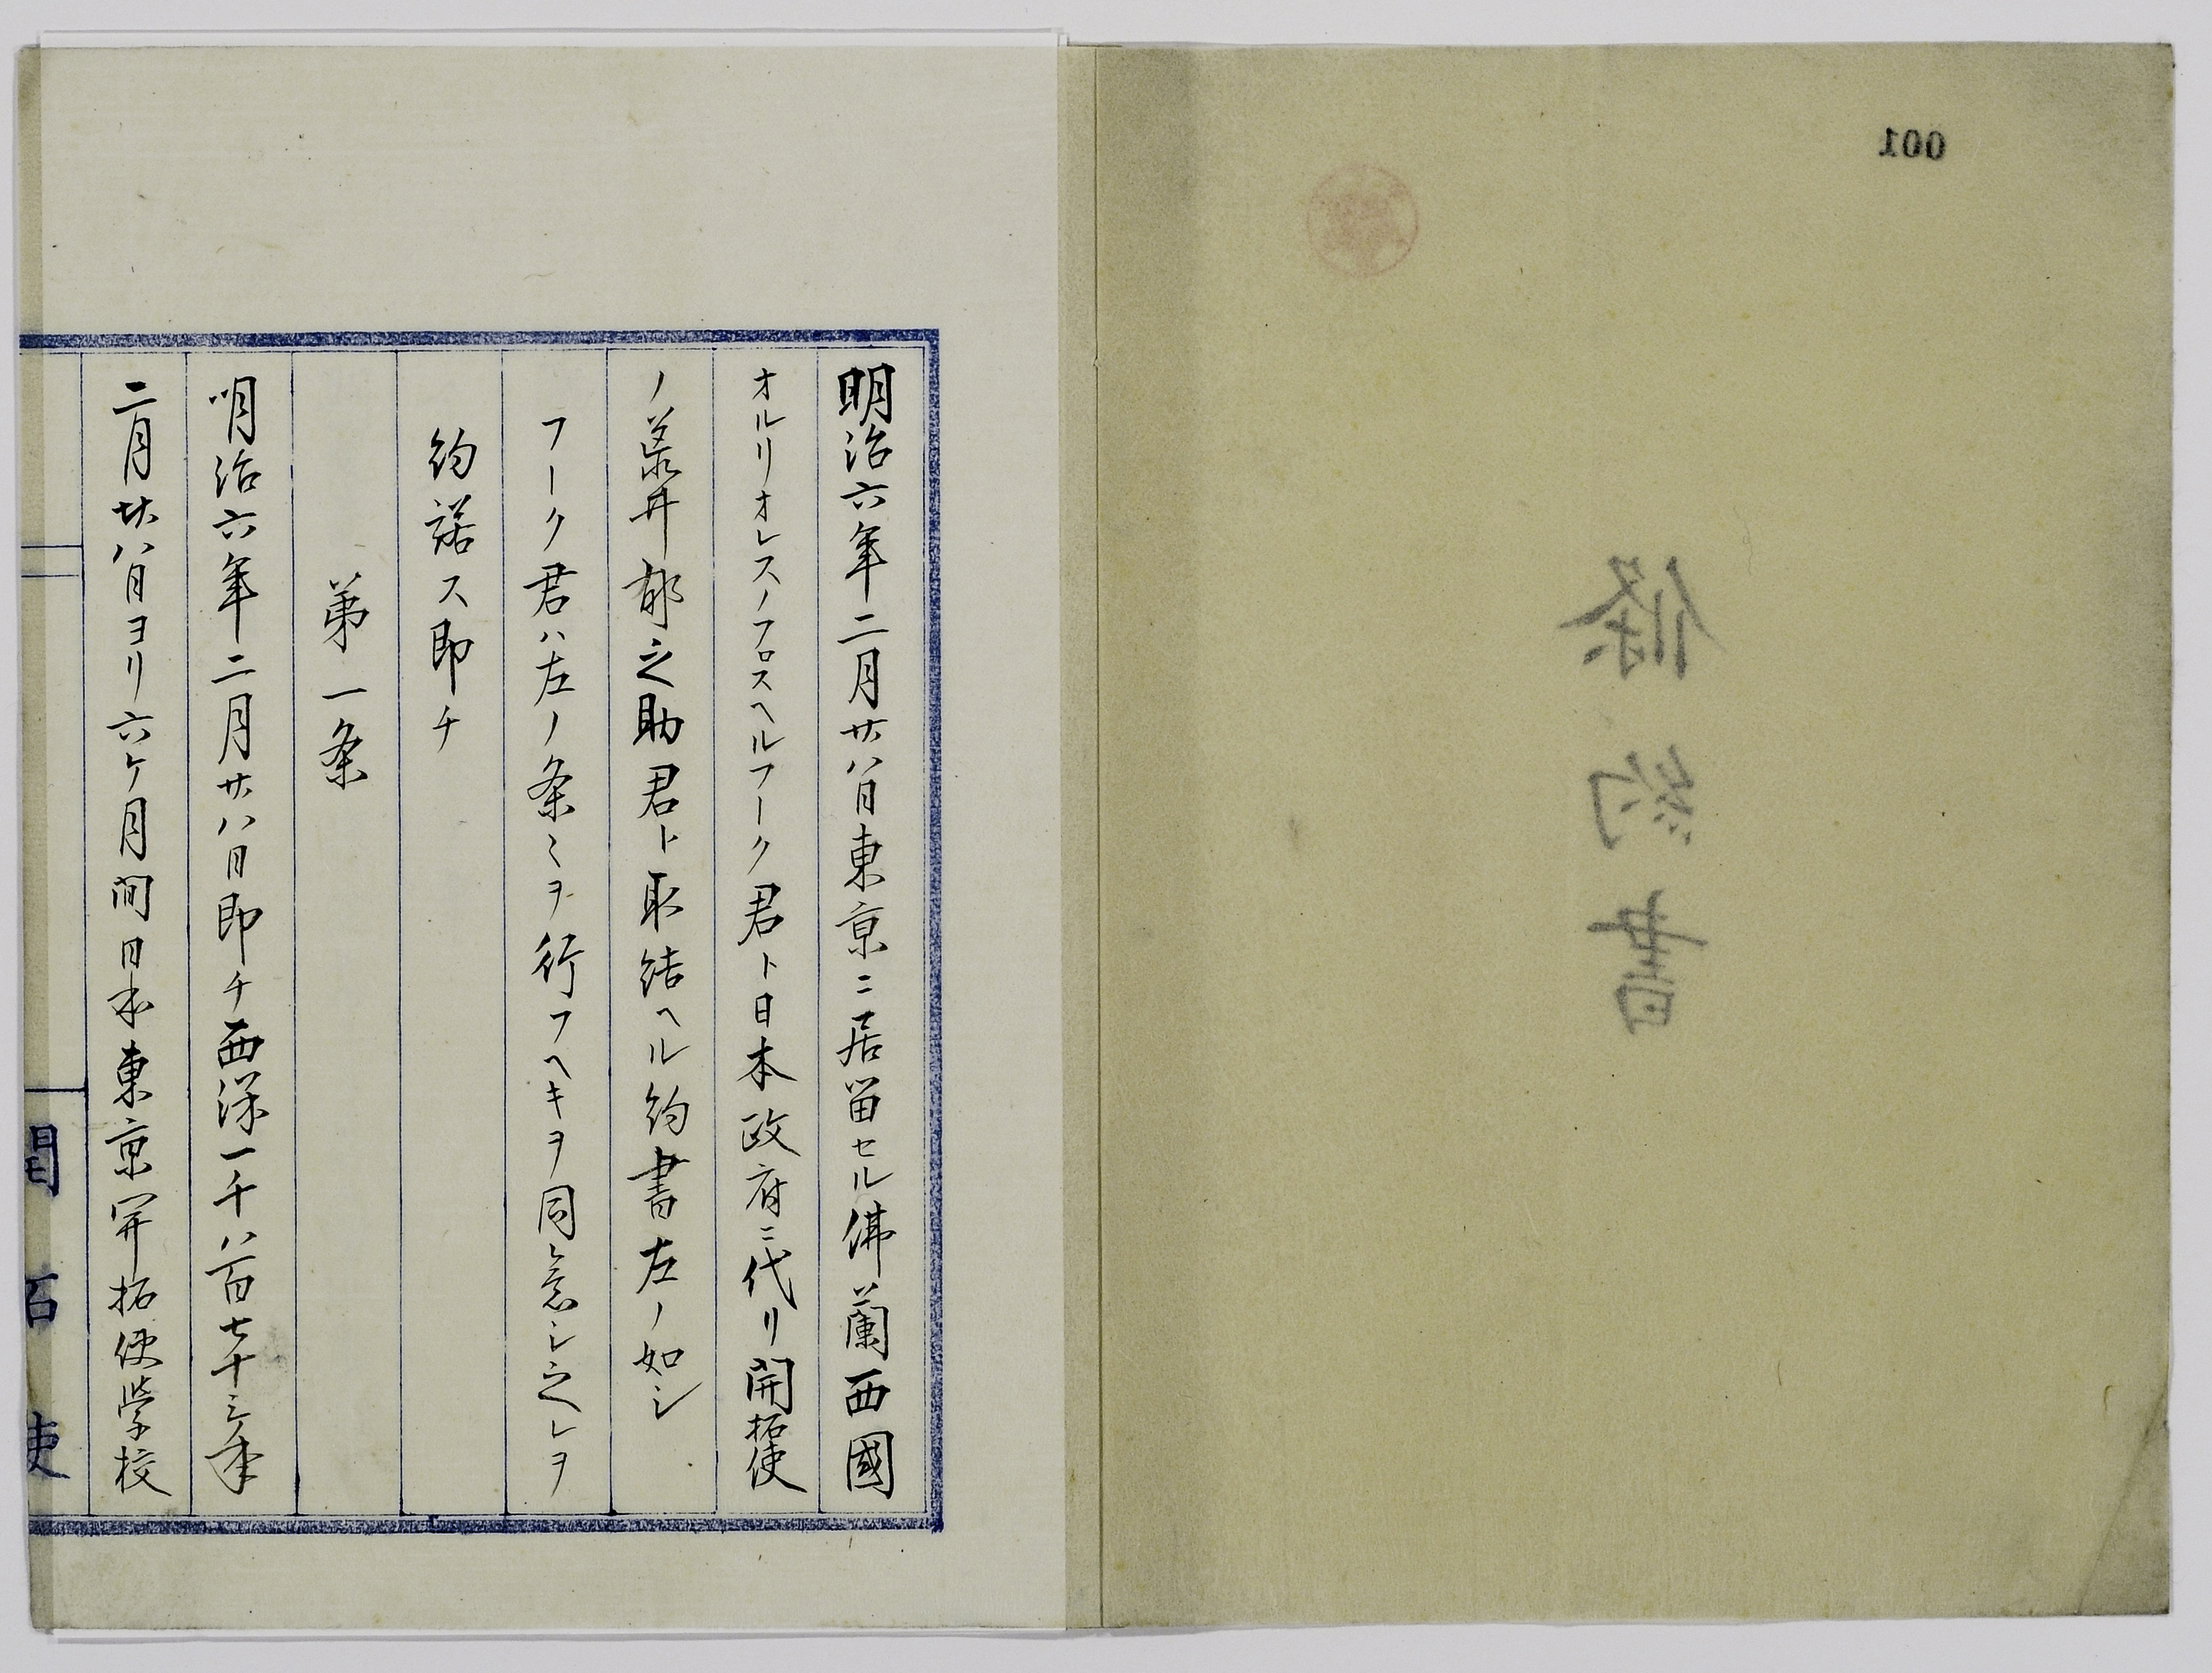 001
條約書
明治六年二月廿八日東京ニ居留セル佛蘭西國
オルリオレスノフロスヘルフーク君ト日本政府ニ代リ開拓使
ノ荒井郁之助君ト取結ヘル約書左ノ如シ
フーク君ハ左ノ条〻ヲ行フヘキヲ同意シ之レヲ
約諾ス即チ
第一条
明治六年二月廿八日即チ西洋一千八百七十三年
二月廿八日ヨリ六ケ月間日本東京開拓使学校
開拓使